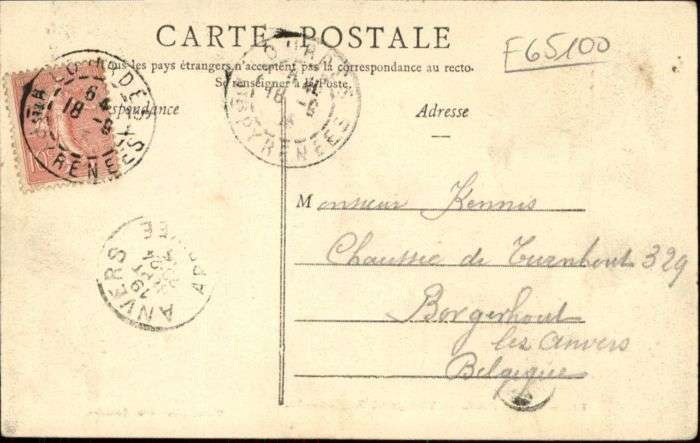 CARTE POSTALE
Tous les pays étrangers n'acceptent pas la correspondance au recto.
Se renseigner à la Poste.
F65100
Correspondance
Adresse
LOURDES
18 -9
PYRENÉES
LOURDES
18 -9
PYRENÉES
ANVERS
ARRIVÉE
Monsieur Kennis
Chaussée de Turnhout 329
Borgerhout
lez Anvers
Belgique